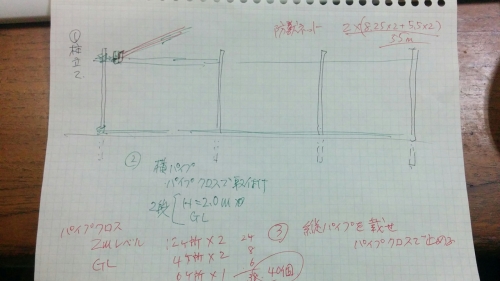 ① 柱立て
防獣ネット 2×(8.25×2+5.5×2)
55m
② 横パイプ
パイプクロスで取付け
2段 H=2.0m
GL
パイプクロス
2mレベル 12ヶ所×2 24
GL 4ヶ所×2 8
6ヶ所×1 6
40個
③ 縦パイプを載せ
パイプクロスで止める